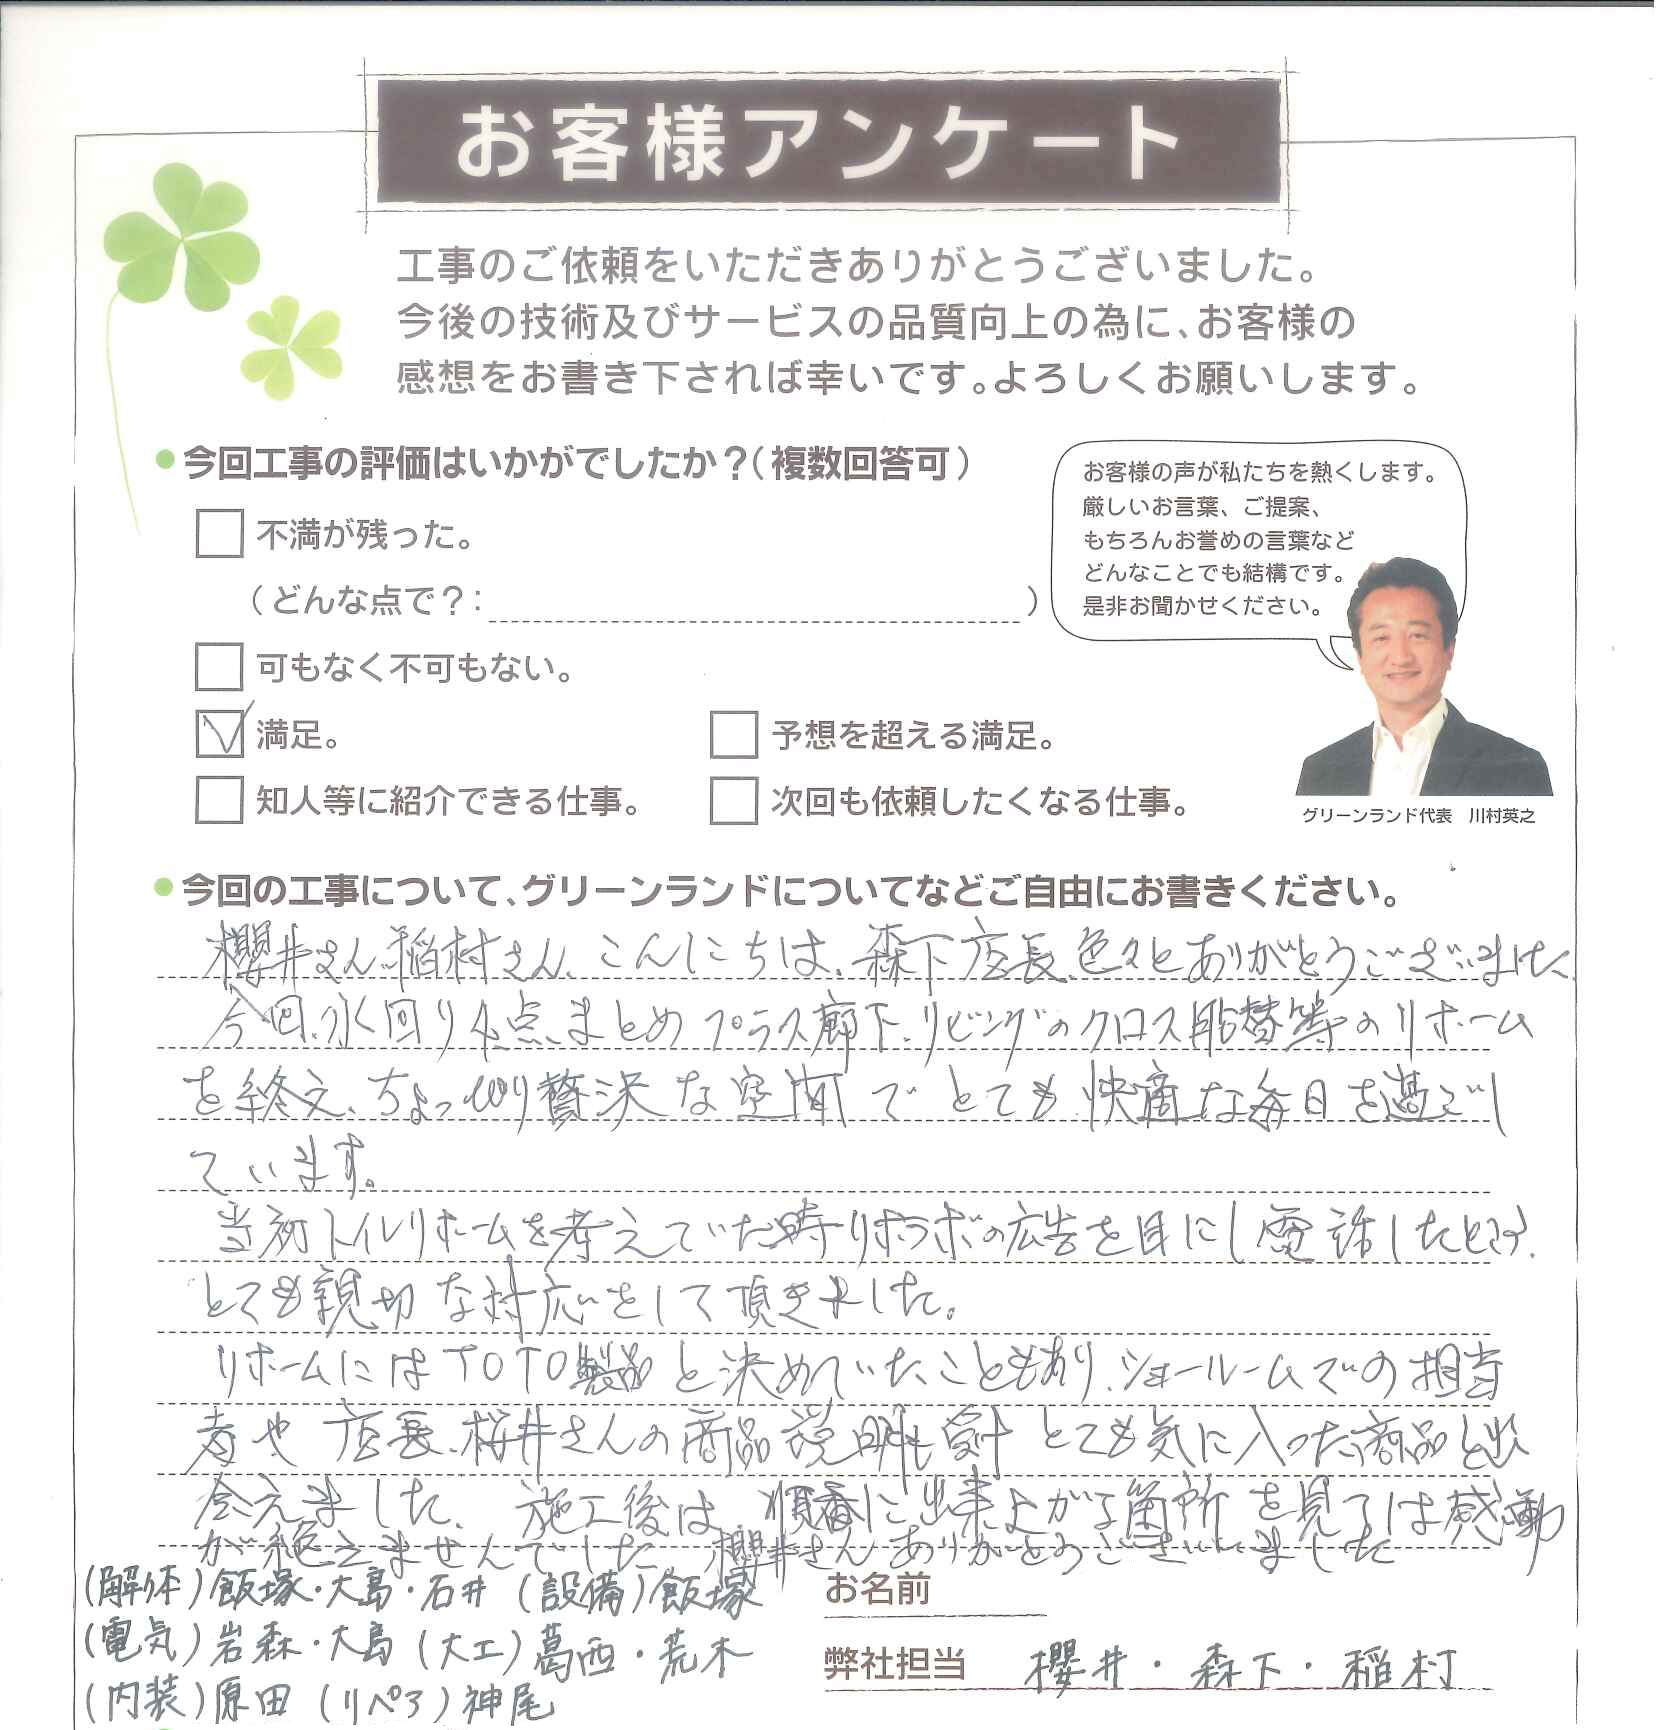 お客様アンケート
工事のご依頼をいただきありがとうございました。
今後の技術及びサービスの品質向上の為に、お客様の
感想をお書き下されば幸いです。よろしくお願いします。
今回工事の評価はいかがでしたか？（複数回答可）
不満が残った。
（どんな点で？：）
可もなく不可もない。
満足。
予想を超える満足。
知人等に紹介できる仕事。
次回も依頼したくなる仕事。
お客様の声が私たちを熱くします。
厳しいお言葉、ご提案、
もちろんお誉めの言葉など
どんなことでも結構です。
是非お聞かせください。
グリーンランド代表 川村英之
今回の工事について、グリーンランドについてなどご自由にお書きください。
櫻井さん、稲村さん、こんにちは、森下店長、色々とありがとうございました。
今回、水回り4点まとめプラス廊下、リビングのクロス貼替等のリホーム
を終え、ちょっぴり贅沢な空間でとても快適な毎日を過ごし
ています。
当初トイレリホームを考えていた時リボラボの広告を目にし電話したところ、
とても親切な対応をして頂きました。
リホームにはTOTO製品と決めていたこともあり、ショールームでの担当
者や店長、桜井さんの商品説明も受けとても気に入った商品と出
会えました。施工後は、順番に出来上がる箇所を見ては感動
が絶えませんでした。櫻井さんありがとうございました
(解体)飯塚・大島・石井 (設備)飯塚
(電気)岩森・大島 (大工)葛西・荒木
(内装)原田 (リペア)神尾
お名前
弊社担当 櫻井・森下・稲村